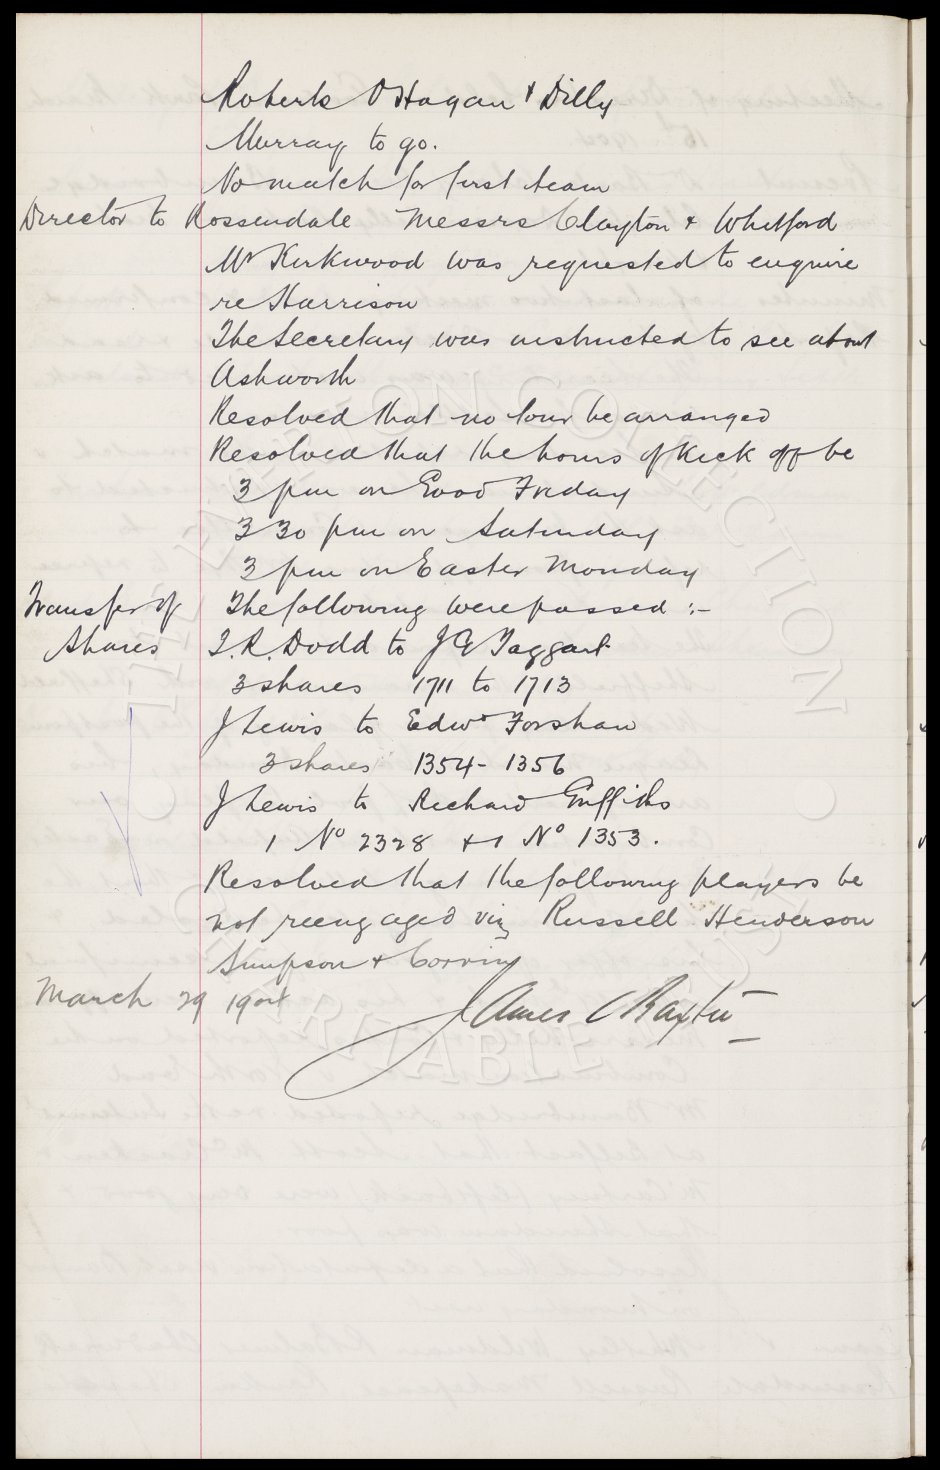 Roberts O'Hagan & Dilly
Murray to go.
No match for first team
Director to Rossendale Messrs Clayton & Whitford
Mr Kirkwood was requested to enquire
re Harrison
The Secretary was instructed to see about
Ashworth
Resolved that no tour be arranged
Resolved that the hours of Kick off be
3 pm on Good Friday
3 30 pm on Saturday
3 pm on Easter Monday
Transfer of The following were passed :-
Shares T.R. Dodd to J G Taggart
3 shares 1711 to 1713
J Lewis to Edwd Forshaw
3 shares 1354 - 1356
J Lewis to Richard Griffiths
1 No 2328 + 1 No 1353.
Resolved that the following players be
not reengaged viz Russell Henderson
Simpson &
March 29 1904 James C Baxter
THE EVERTON COLLECTION
CHARITABLE TRUST